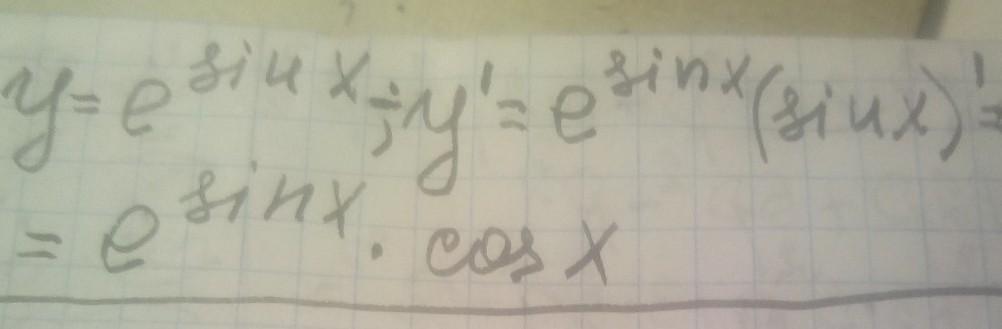 y = e^{sin x}; y' = e^{sin x}(sin x)' =
= e^{sin x} · cos x